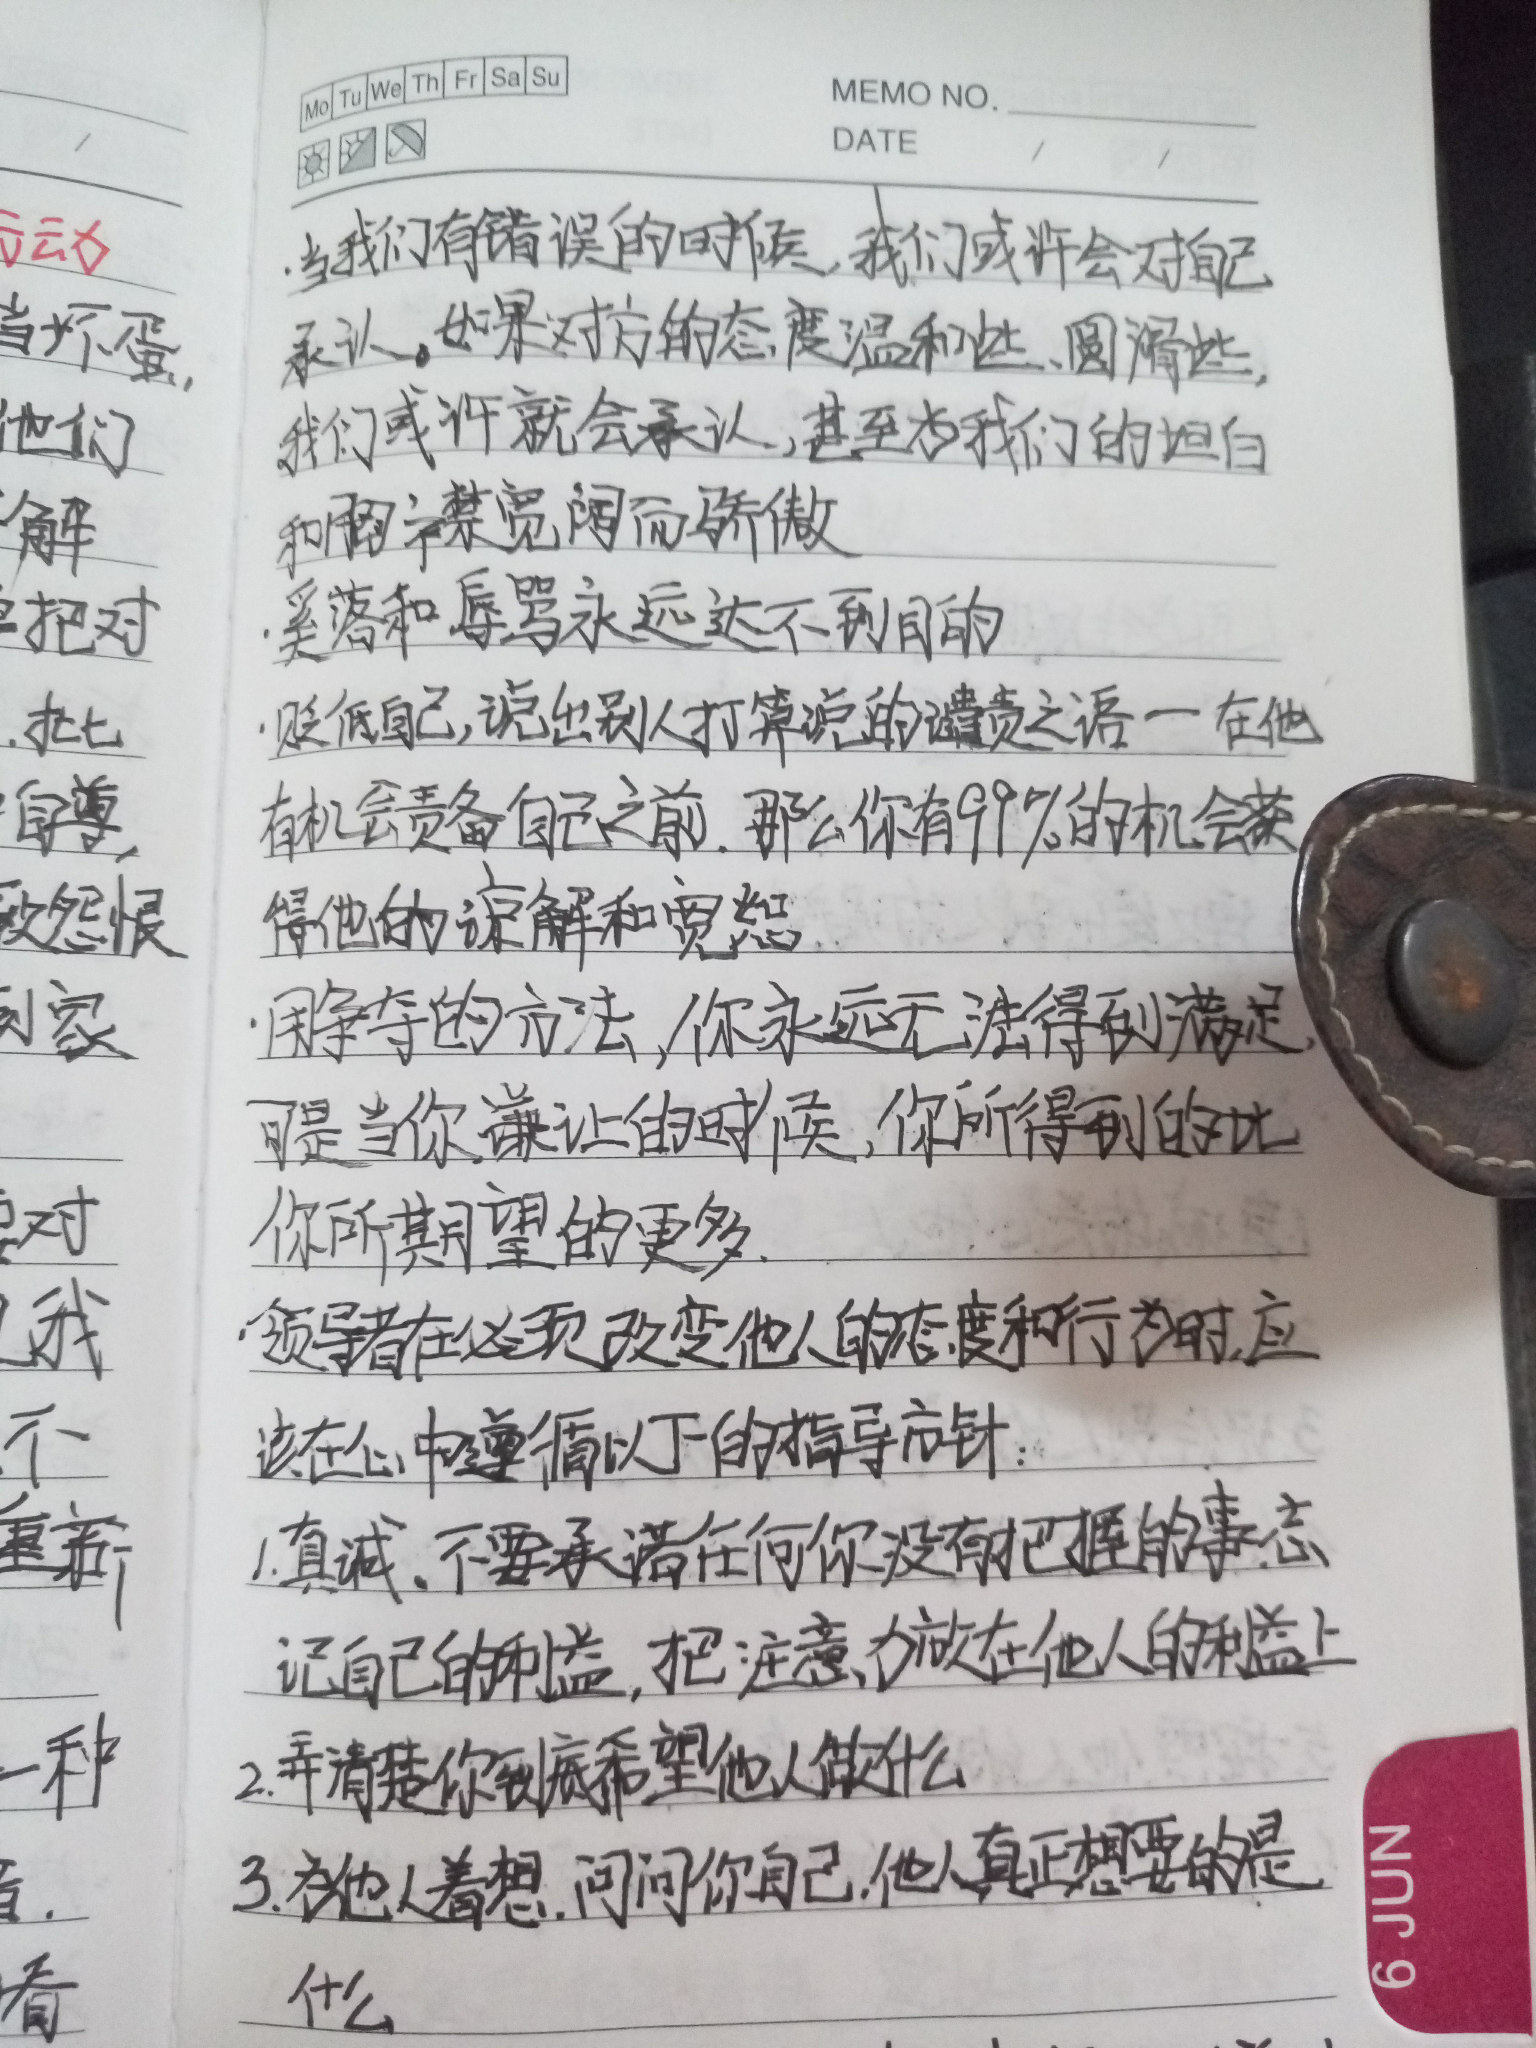 Mo Tu We Th Fr Sa Su
MEMO NO.
DATE / /
·当我们有错误的时候，我们或许会对自己
承认。如果对方的态度温和些、圆滑些，
我们或许就会承认，甚至为我们的坦白
和胸襟宽阔而骄傲
·奚落和辱骂永远达不到目的
·贬低自己，说出别人打算说的谴责之语一在他
有机会责备自己之前．那么你有99%的机会获
得他的谅解和宽恕
·用争夺的方法，你永远无法得到满足，
可是当你谦让的时候，你所得到的比
你所期望的更多．
·领导者在必须改变他人的态度和行为时，应
该在心中遵循以下的指导方针：
1.真诚、不要承诺任何你没有把握的事．忘
记自己的利益，把注意力放在他人的利益上
2.弄清楚你到底希望他人做什么
3.为他人着想．问问你自己．他人真正想要的是
什么
6 JUN
/
云力
当坏蛋，
他们
解
把对
．批
自尊，
致怨恨
家
对
我
不
重新
一种
．
看